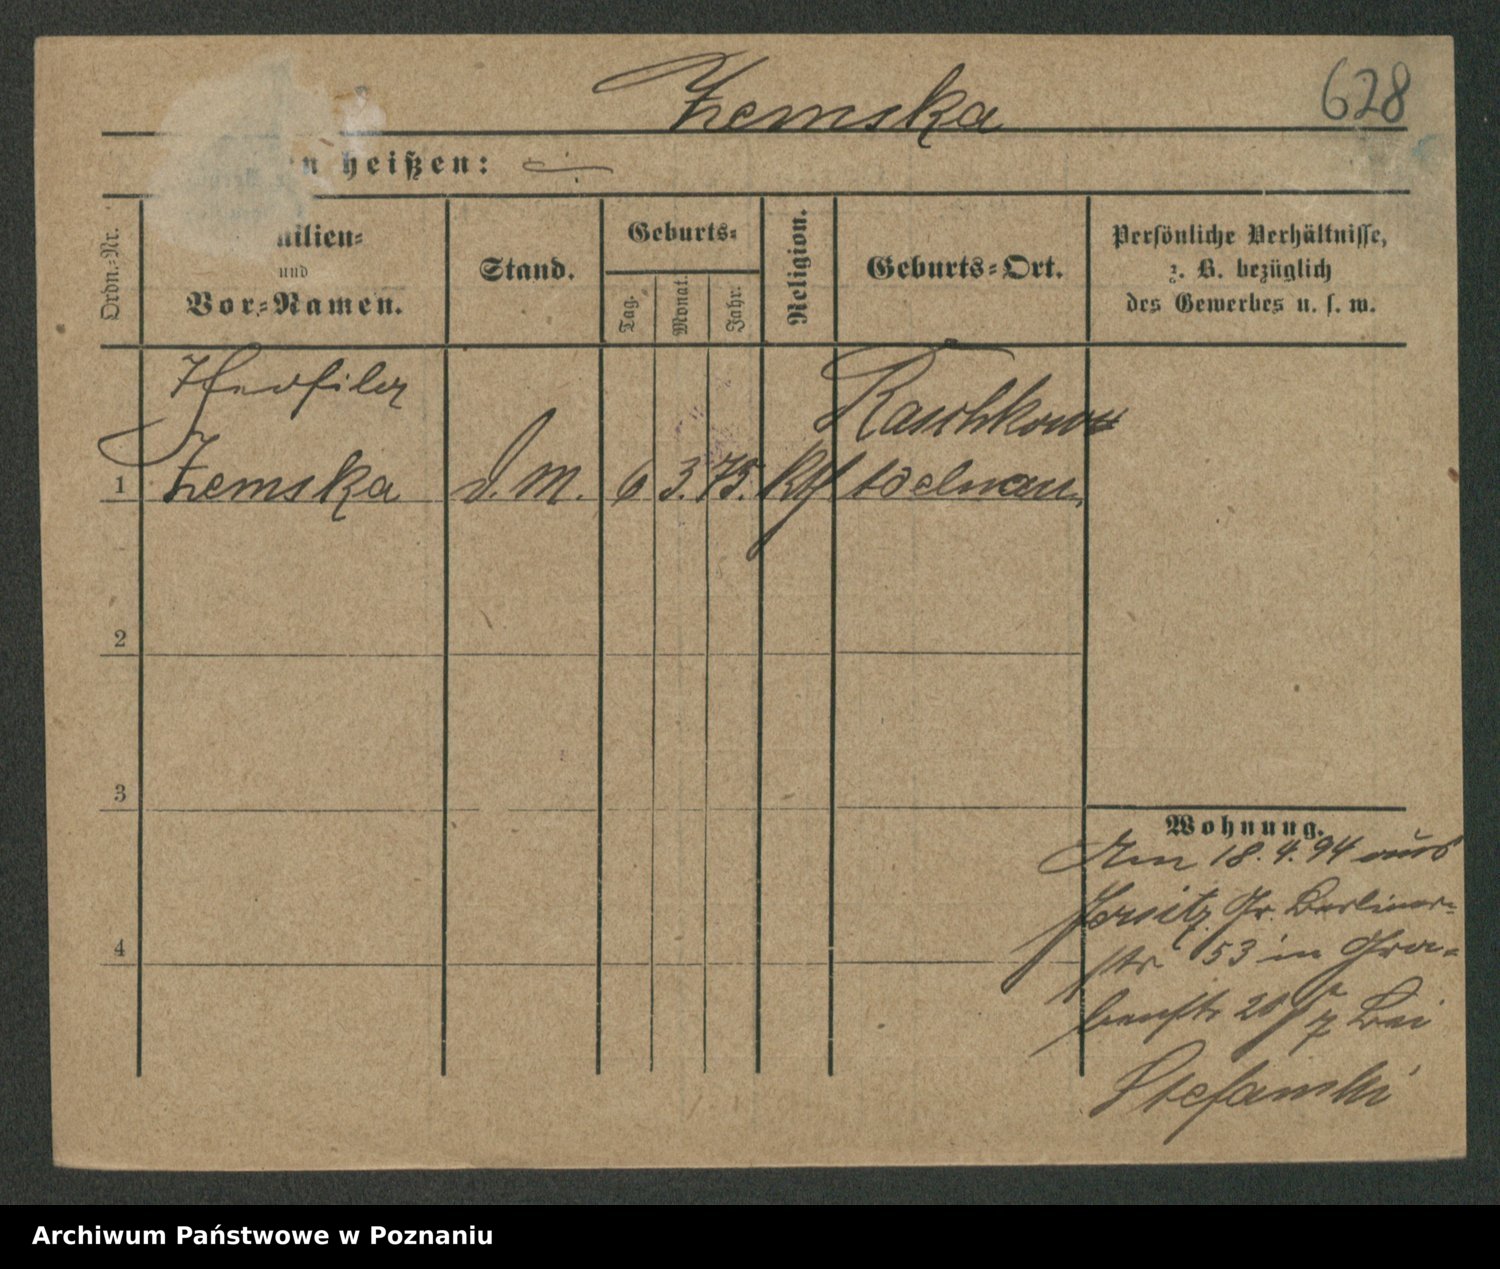 Zemska
628
n heißen:
Ordn.-Nr.
milien-
und
Vor-Namen.
Stand.
Geburts-
Tag.
Monat.
Jahr.
Religion.
Geburts-Ort.
Persönliche Verhältnisse,
z. B. bezüglich
des Gewerbes u. s. w.
Raschkow
1 Zemska d. M. 6 3. 75. Kth Adelnau
2
3
4
Wohnung.
Am 18. 4. 94 aus
Jersitz Gr. Berliner-
str 53 in Gra-
benstr 20 bei
Stefanski
Archiwum Państwowe w Poznaniu